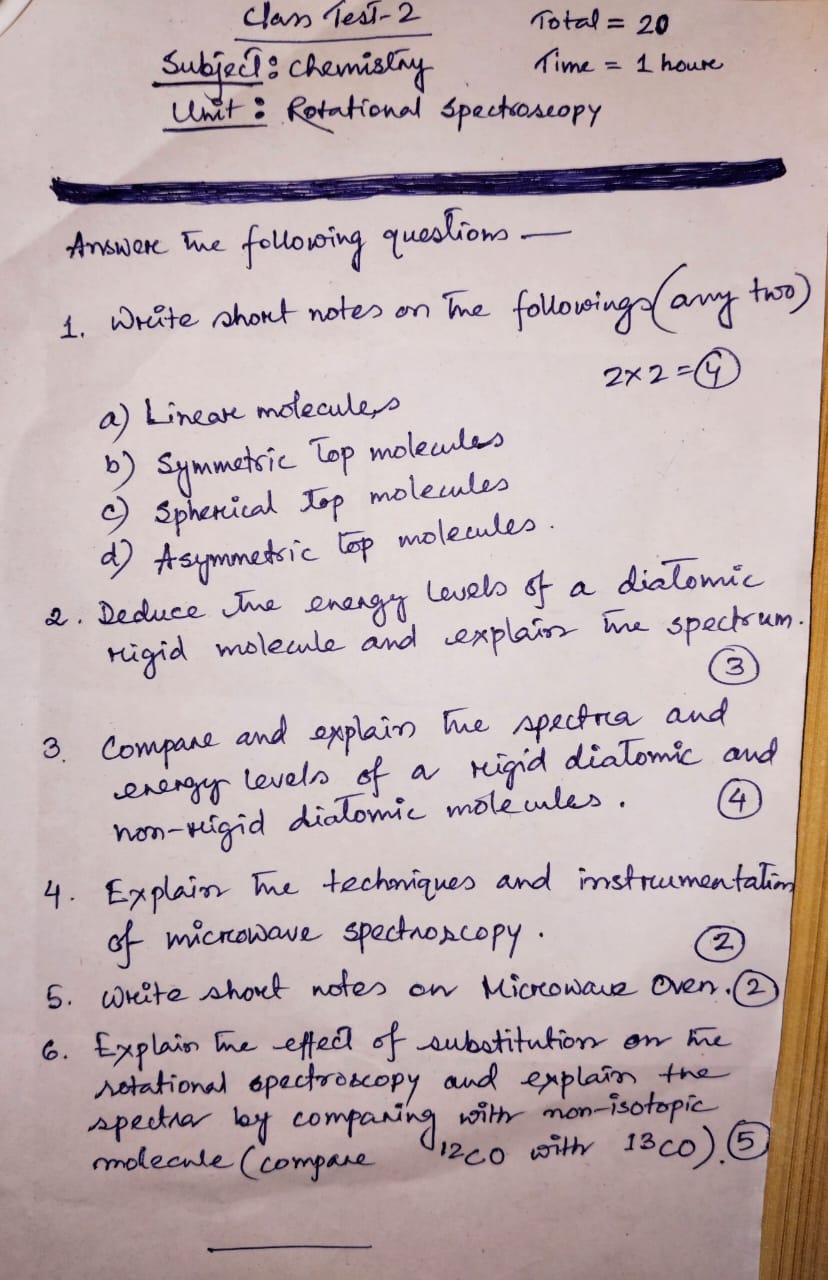 Class Test-2
Total = 20
Subject: Chemistry
Time = 1 houre
Unit: Rotational Spectroscopy
Answere the following questions —
1. Write short notes on the followings (any two)
2×2=4
a) Lineare molecules
b) Symmetric Top molecules
c) Spherical top molecules
d) Asymmetric top molecules.
2. Deduce the energy levels of a diatomic
rigid molecule and explain the spectrum.
3
3. Compare and explain the spectra and
energy levels of a rigid diatomic and
non-rigid diatomic molecules.
4
4. Explain the techniques and instrumentation
of microwave spectroscopy.
2
5. Write short notes on Microwave Oven. 2
6. Explain the effect of substitution on the
rotational spectroscopy and explain the
spectra by comparing with non-isotopic
molecule (compare 12CO with 13CO). 5